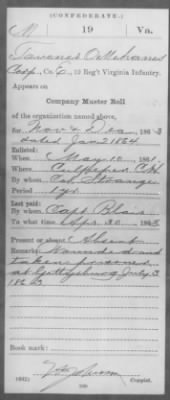 (CONFEDERATE.)
M 19 Va.
Corp., Co. C, 19 Reg't Virginia Infantry.
Appears on
Company Muster Roll
of the organization named above,
for Nov & Dec, 1863
dated Jan 2 1864
Enlisted:
When May 10, 1861
Where Culpeper C.H.
By whom Col Strange
Period 1 yr
Last paid:
By whom Capt Blair
To what time Apr. 30, 1863
Present or absent Absent
Remarks: Wounded and
taken prisoner
at Gettysburg July 3
1863
Book mark:
(642) Copyist.